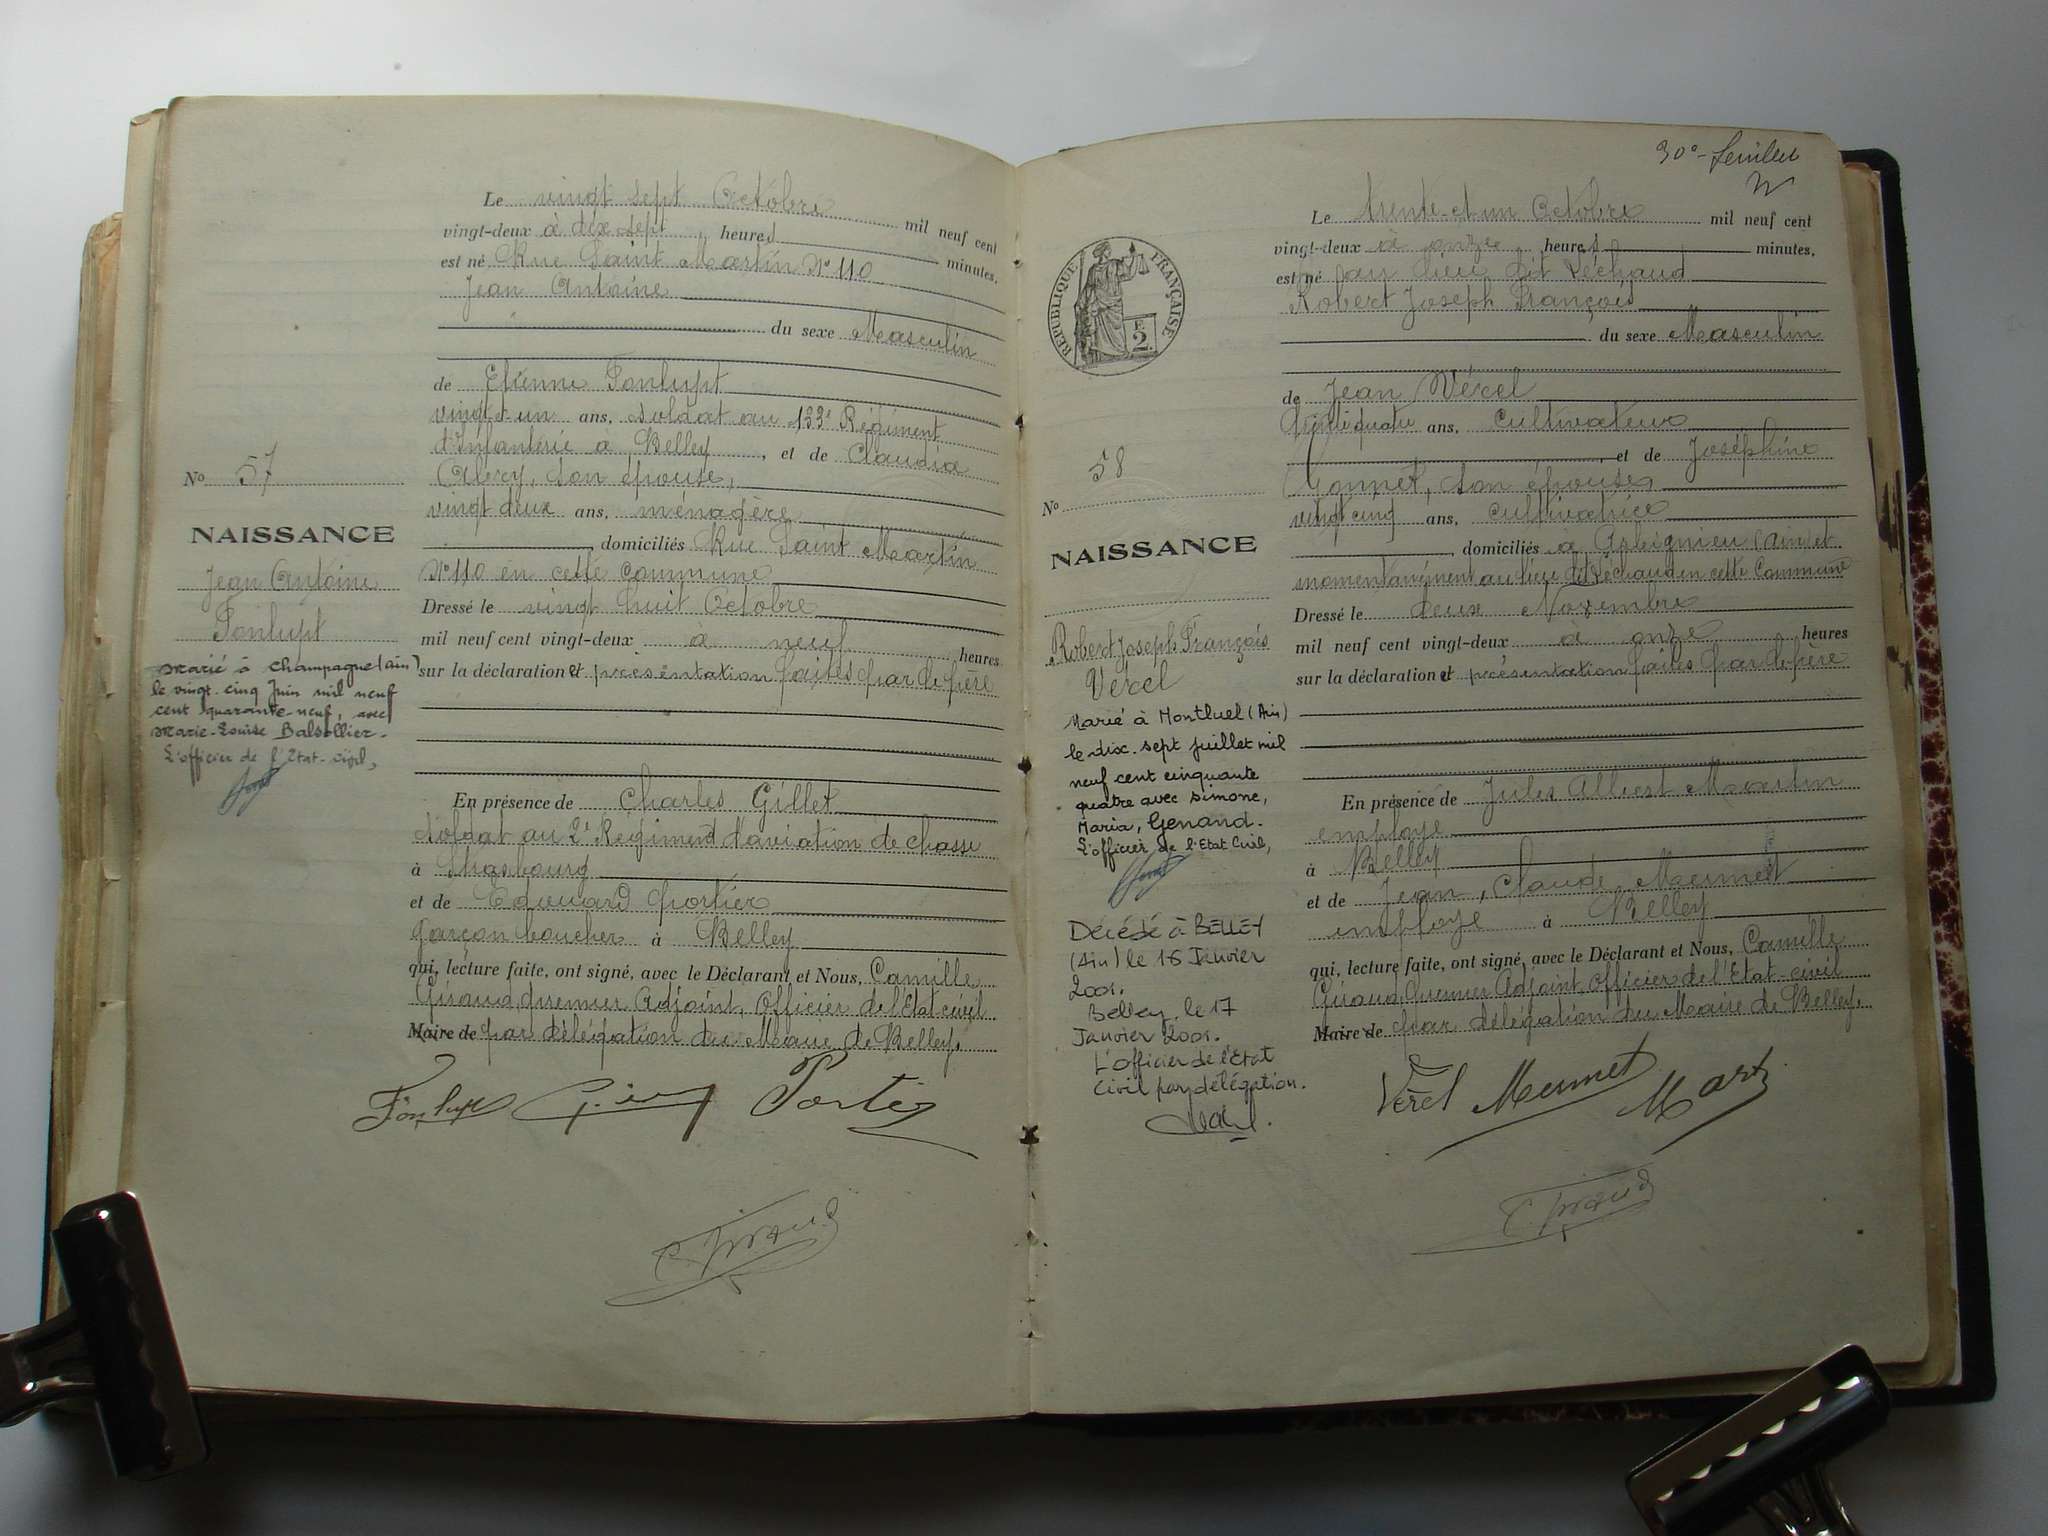 Le vingt sept Octobre mil neuf cent
vingt-deux à dix sept heures minutes,
est né Rue Saint Martin Nº 110
Jean Antoine
du sexe Masculin
de Etienne Fonlupt
vingt-et-un ans, soldat au 133e Régiment
d'Infanterie à Belley, et de Claudia
son épouse,
vingt deux ans, ménagère
, domiciliés Rue Saint Martin
Nº 110 en cette commune
Dressé le vingt huit Octobre
mil neuf cent vingt-deux à neuf heures
sur la déclaration et présentation faites par le père
En présence de Charles Gillet
soldat au 2e Régiment d'aviation de chasse
à Strasbourg
et de Edouard Portier
garçon boucher à Belley
qui, lecture faite, ont signé, avec le Déclarant et Nous, Camille
Giraud, premier Adjoint, Officier de l'Etat-civil
Maire de par délégation du Maire de Belley.
Fonlupt Portier
C. Giraud
No 57
NAISSANCE
Jean Antoine
Fonlupt
Marié à Champagne (Ain)
le vingt-cinq Juin mil neuf
cent quarante-neuf, avec
Marie-Louise Balsollier.
L'officier de l'Etat-civil,
30e
RÉPUBLIQUE FRANÇAISE
F.
2.
No 58
NAISSANCE
Robert Joseph François
Vérel
Marié à Montluel (Ain)
le dix-sept juillet mil
neuf cent cinquante
quatre avec Simone,
Maria, Genand.
L'officier de l'Etat Civil,
Décédé à BELLEY
(Ain) le 16 Janvier
2001.
Belley, le 17
Janvier 2001.
L'officier de l'Etat
Civil par délégation.
Le trente-et-un Octobre mil neuf cent
vingt-deux à onze heures minutes,
est né au lieu dit
Robert Joseph François
du sexe Masculin
de Jean Vérel
quatre ans, cultivateur
, et de Joséphine
Gonnet, son épouse,
vingt cinq ans, cultivatrice
, domiciliés à Arbignieu (Ain) et
momentanément au lieu dit en cette Commune
Dressé le deux Novembre
mil neuf cent vingt-deux à onze heures
sur la déclaration et présentation faites par le père
En présence de Jules Albert Martin
employé
à Belley
et de Jean, Claude Meunet
employé à Belley
qui, lecture faite, ont signé, avec le Déclarant et Nous, Camille
Giraud, Premier Adjoint Officier de l'Etat-civil
Maire de par délégation du Maire de Belley.
Vérel Meunet Martin
C. Giraud